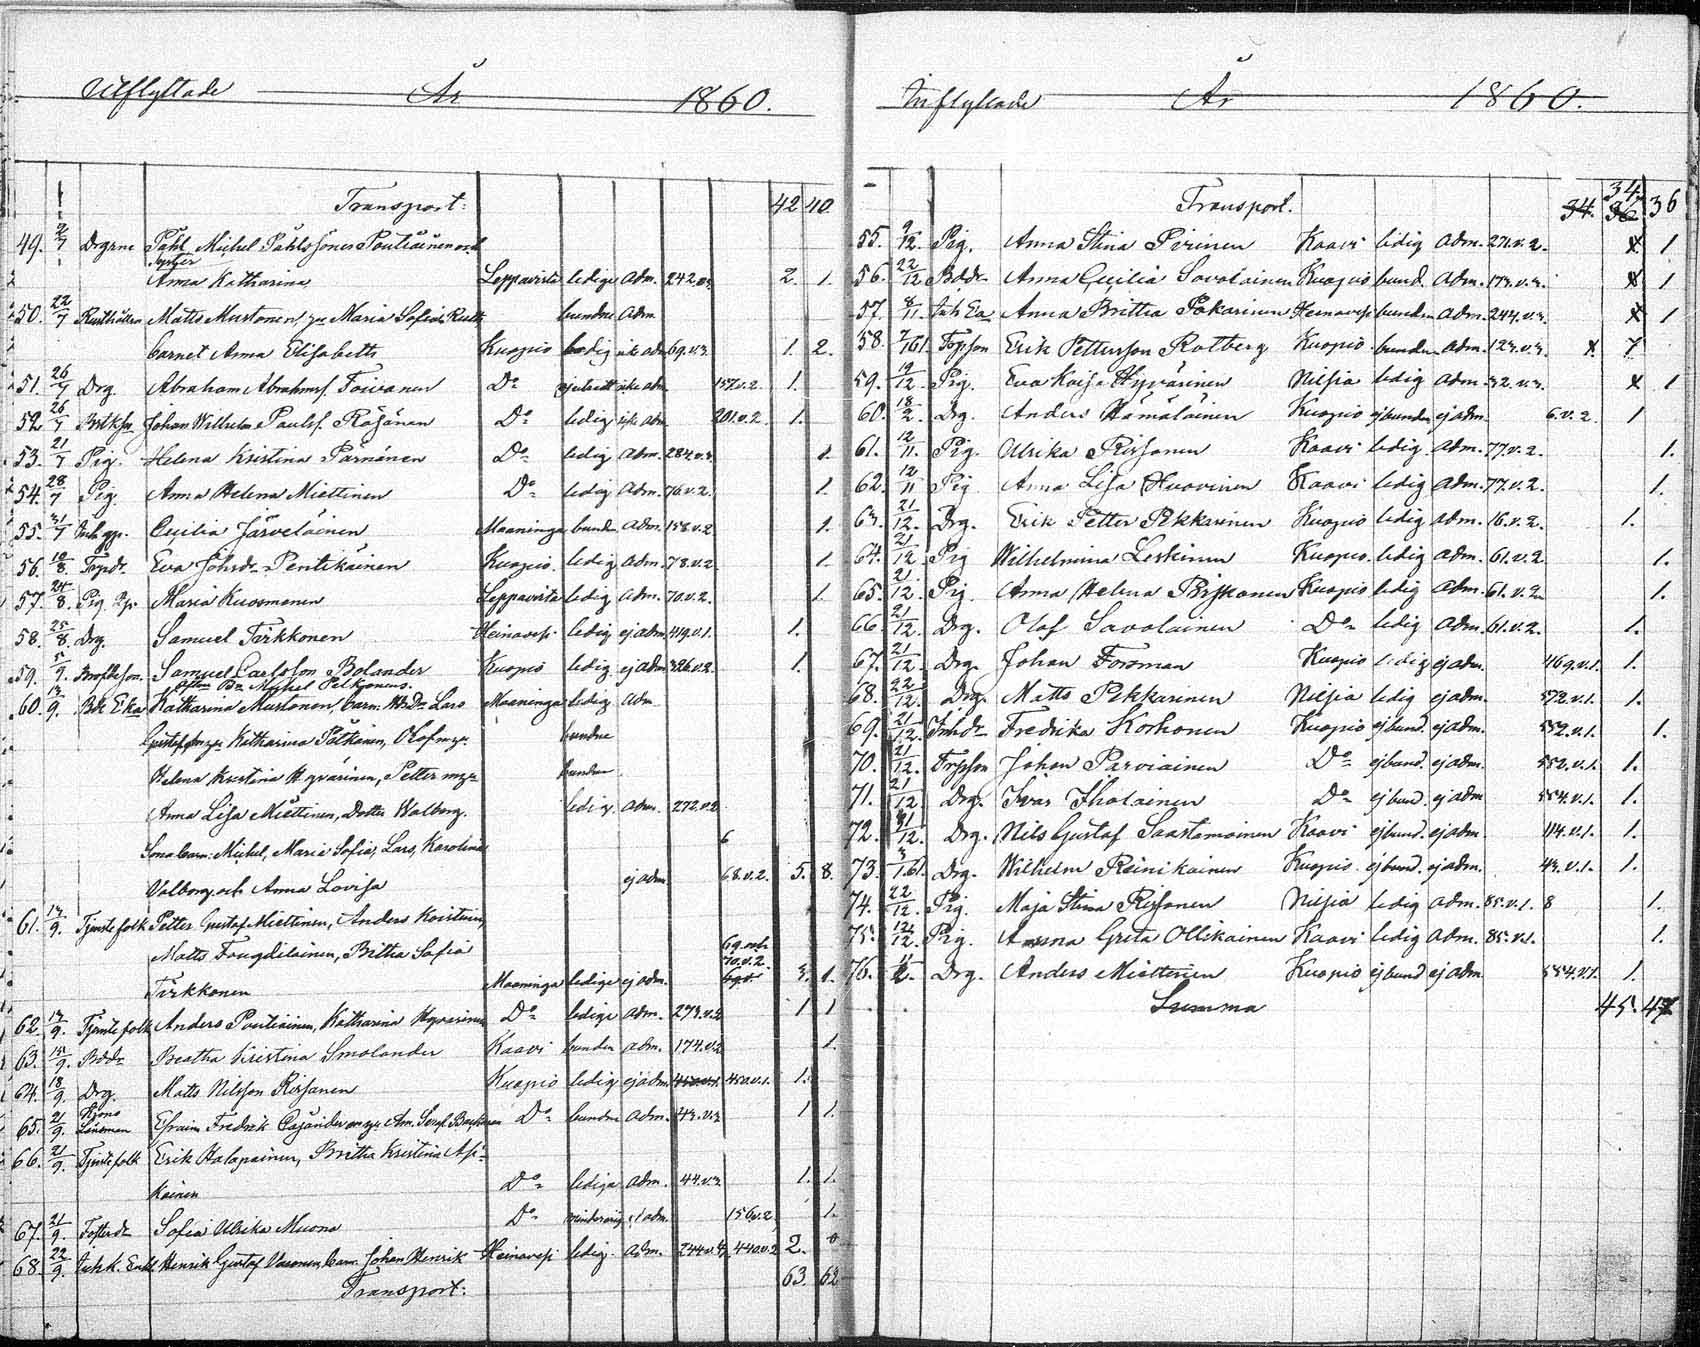 Utflyttade År 1860.
Transport: 42 40.
49. 2/7 Drgrne Påhl Michel Påhlssoner Poutiainen och
Syster
Anna Katharina Leppävirta ledige adm. 242.v.2. 2. 1.
50. 22/7 Rusthållaren Matts Mustonen, Maria Sofia bundne adm.
barnet Anna Elisabeth Kuopio ledig icke adm. 69.v.2. 1. 2.
51. 26/7 Drg. Abraham Abrahmsf. Toivanen Do icke adm. 157.v.2. 1.
52. 26/7 Johan Wilhelm Paulsf. Räsänen Do ledig icke adm. 201.v.2. 1.
53. 21/7 Pig. Helena Kristina Pärnänen Do ledig adm. 284.v.2. 1.
54. 28/7 Pig. Anna Helena Miettinen Do ledig adm. 76.v.2. 1.
55. 31/7 Cecilia Järveläinen Maaninga bunde adm. 158.v.2. 1.
56. 10/8. Eva Johsdr Pentikäinen Kuopio ledig adm. 78.v.2. 1.
57. 24/8. Pig. Maria Kuosmanen Leppävirta ledig adm. 70.v.2. 1.
58. 25/8. Drg. Samuel Tirkkonen Heinävesi ledig ej adm. 419.v.1. 1.
59. 5/9. Samuel Carlsson Bolander Kuopio ledig ej adm. 326.v.2. 1.
Michel Pelkonens
60. 13/9. Bde Eka Katharina Mustonen, barn: Lars Maaninga ledig adm.
Gustaf Katharina Pätkänen, Olof bundne
Helena Kristina Hyvärinen, Petter bundne
Anna Lisa Miettinen, Dotter Walborg. ledig adm. 272.v.2
6
Sona barn: Michel, Maria Sofia, Lars, Karolina
Valborg och Anna Lovisa ej adm. 68.v.2. 5. 8.
61. 13/9. Tjenstefolk Petter Gustaf Miettinen, Anders Koistinen,
Matts Fougdilainen, Britha Sofia 69. och
70.v.2.
Tirkkonen Maaninga ledige ej adm. 3. 1.
62. 13/9. Tjenstefolk Anders Poutiainen, Katharina Hyvärinen Do ledige adm. 273.v.2 1 1
63. 15/9. Bddr Beatha Kristina Smolander Kaavi bunden adm. 174.v.2 1.
64. 18/9. Drg. Matts Nilsson Rissanen Kuopio ledig ej adm. 450.v.1. 450.v.1. 1.
Krono
65. 21/9. Länsman Efraim Fredrik Cajander Do bundne adm. 43.v.2 1 1.
66. 21/9. Tjenstefolk Erik Halapainen, Britha Kristina Asi-
kainen Do lediga adm. 44.v.2. 1. 1.
67. 21/9. Fosterdr Sofia Ulrika Muona Do minderårig ej adm. 156.v.2. 1.
68. 22/9. Henrik Gustaf Vavonen, barn: Johan Henrik Heinävesi ledig. adm. 244.v.2, 440.v.2 2. 0
Transport: 63. 62
Inflyttade År 1860.
34.
Transport. 34. 36 36
55. 9/12. Pig. Anna Stina Pirinen Kaavi ledig adm. 271.v.2. x 1
56. 22/12 Bddr Anna Cecilia Savolainen Kuopio bund. adm. 173.v.2. x 1
57. 8/11. Inh Ea Anna Britha Pakarinen Heinävesi bunden adm. 244.v.2. x 1
58. 7/1 61. Torpson Erik Pettersson Rotberg Kuopio bunden adm. 123.v.2. 1.
59. 19/12. Pig. Eva Kaisa Hyvärinen Nilsiä ledig adm. 32.v.2. x 1
60. 18/2. Drg. Anders Hämäläinen Kuopio ej bunden ej adm. 6.v.2. 1
61. 12/11. Pig. Ulrika Rissanen Kaavi ledig adm. 77.v.2. 1.
62. 12/11 Pig Anna Lisa Huovinen Kaavi ledig adm. 77.v.2. 1.
63. 21/12. Drg. Erik Petter Pekkarinen Kuopio ledig adm. 16.v.2. 1.
64. 21/12 Pig Wilhelmina Leskinen Kuopio ledig adm. 61.v.2. 1.
65. 21/12. Pig Anna Helena Kuopio ledig adm. 61.v.2. 1.
66. 21/12. Drg. Olof Savolainen Do ledig adm. 61.v.2. 1.
67. 21/12 Drg. Johan Forsman Kuopio ledig ej adm. 469.v.1. 1.
68. 22/12. Drg. Matts Pekkarinen Nilsiä ledig ej adm. 572.v.1. 1.
69. 21/12. Inhdr Fredrika Korhonen Kuopio ej bund. ej adm. 552.v.1. 1.
70. 21/12. Trpson Johan Parviainen Do ej bund. ej adm. 552.v.1. 1.
71. 21/12 Drg. Ivar Iholainen Do ej bund. ej adm 554.v.1. 1.
72. 31/12. Drg. Nils Gustaf Saastamoinen Kaavi ej bund. ej adm. 114.v.1. 1.
73. 3/1 61. Drg. Wilhelm Reinikainen Kuopio ej bund. ej adm. 43.v.1. 1.
74. 22/12. Pig. Maja Stina Rissanen Nilsiä ledig adm. 85.v.1. 8 1.
75. 12/12. Pig. Anna Greta Ollikainen Kaavi ledig adm. 85.v.1. 1.
76. Drg. Anders Miettinen Kuopio ej bund ej adm. 554.v.1. 1.
Summa 45. 47